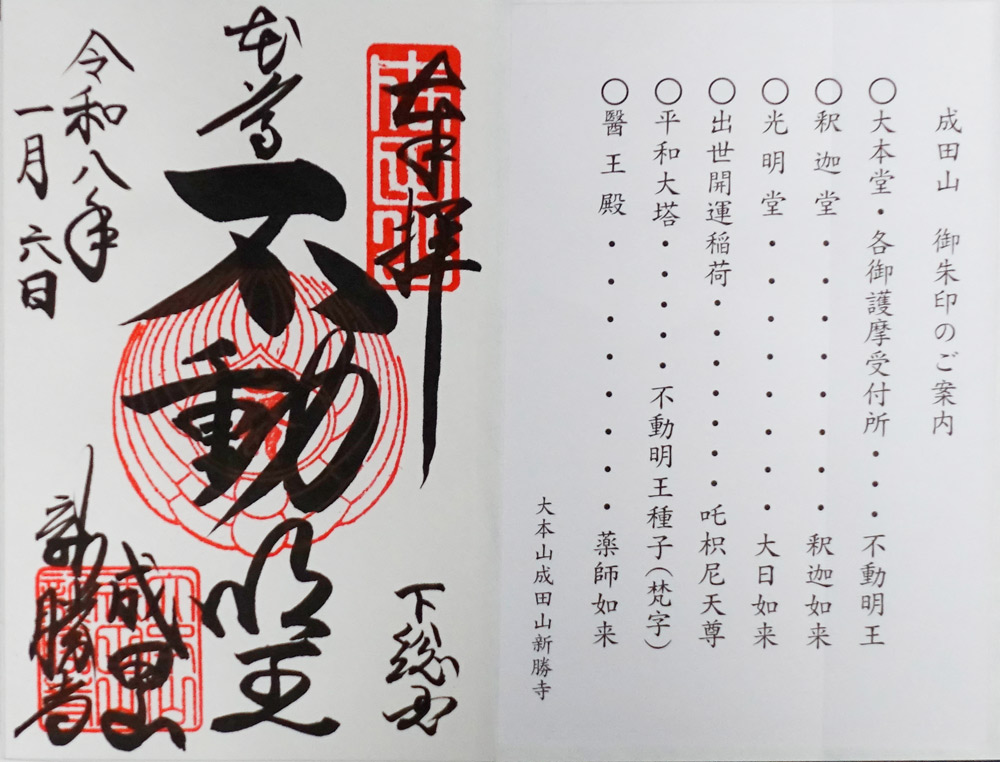 成田山 御朱印のご案内
○大本堂・各御護摩受付所・・・不動明王
○釈迦堂・・・・・・・・釈迦如来
○光明堂・・・・・・・・大日如来
○出世開運稲荷・・・・・・吒枳尼天尊
○平和大塔・・・・不動明王種子(梵字)
○醫王殿・・・・・・・・薬師如来
大本山成田山新勝寺
奉拝
成田山
下総国
本尊
不動明王
令和八年
一月六日
成田山
新勝寺